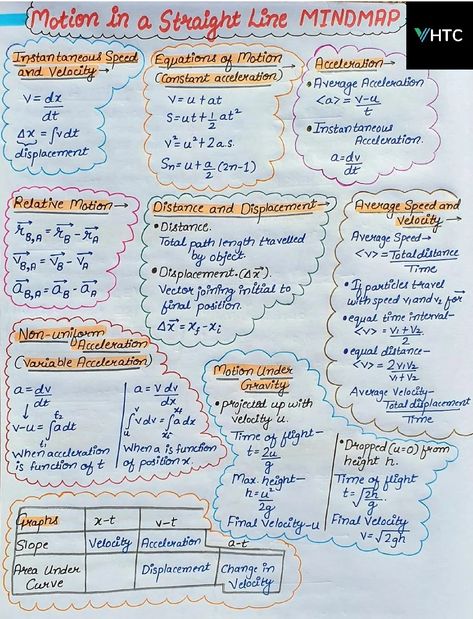 Motion in a Straight Line MINDMAP
VHTC
Instantaneous Speed
and Velocity→
v = dx/dt
Δx = ∫vdt
displacement
Equations of Motion
(Constant acceleration)
v = u + at
S = ut + 1/2 at²
v² = u² + 2as.
Sn = u + a/2 (2n-1)
Acceleration→
• Average Acceleration
<a> = v-u/t
• Instantaneous
Acceleration.
a = dv/dt
Relative Motion→
r⃗B,A = r⃗B - r⃗A
v⃗B,A = v⃗B - v⃗A
a⃗B,A = a⃗B - a⃗A
Distance and Displacement→
• Distance.
Total path length travelled
by object.
• Displacement.(Δx⃗).
Vector joining initial to
final position.
Δx⃗ = xf - xi
Average Speed and
Velocity→
Average Speed→
<v> = Total distance/Time
• If particles travel
with speed v1 and v2 for
• equal time interval-
<v> = v1+v2/2
• equal distance-
<v> = 2v1v2/v1+v2
Average Velocity-
Total displacement/Time
Non-uniform
Acceleration
(Variable Acceleration)
a = dv/dt
↓
v-u = ∫adt
t2
t1
When acceleration
is function of t
a = v dv/dx
↓
∫vdv = ∫adx
v
u
xf
xi
When a is function
of position x.
Motion Under
Gravity
• projected up with
velocity u.
Time of flight-
t = 2u/g
Max height-
h = u²/2g
Final Velocity-u
• Dropped (u=0) from
height h.
Time of flight
t = √2h/g.
Final Velocity
v = √2gh
Graphs x-t v-t
Slope Velocity Acceleration a-t
Area Under
Curve
Displacement
Change in
Velocity